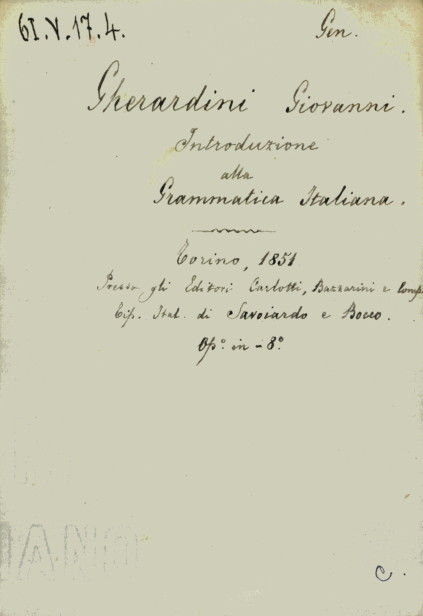 61.V.17.4. Gen.
Gherardini Giovanni.
Introduzione
alla
Grammatica Italiana.
Torino, 1851
Presso gli Editori Carlotti, Bazzarini e Comp.
Tip. Ital. di Savoiardo e Bocco.
Op.º in-8º
C.